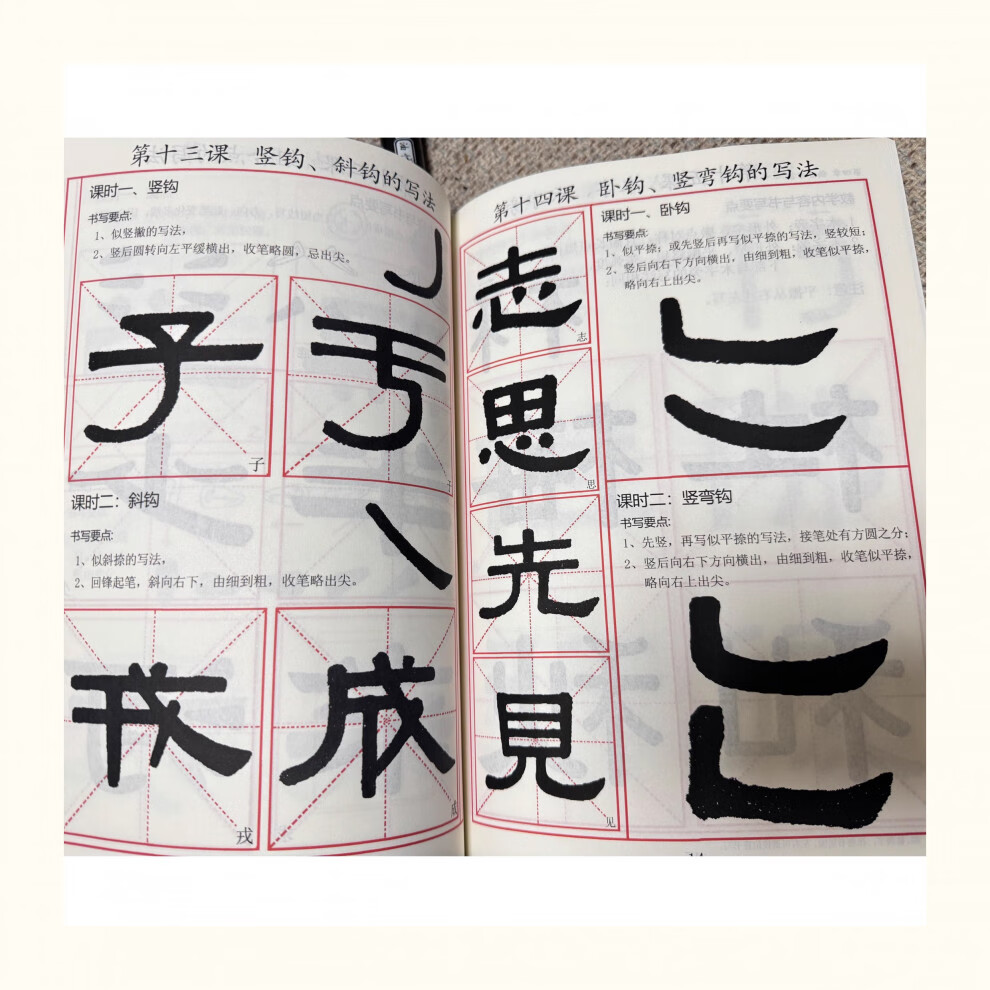 第十三课 竖钩、斜钩的写法
课时一、竖钩
书写要点：
1、似竖撇的写法，
2、竖后圆转向左平缓横出，收笔略圆，忌出尖。
子
于
子
于
课时二：斜钩
书写要点：
1、似斜捺的写法，
2、回锋起笔，斜向右下，由细到粗，收笔略出尖。
戎
成
戎
成
第十四课 卧钩、竖弯钩的写法
志
志
思
思
先
見
见
课时一、卧钩
书写要点：
1、似平捺；或先竖后再写似平捺的写法，竖较短；
2、竖后向右下方向横出，由细到粗，收笔似平捺，
略向右上出尖。
课时二：竖弯钩
书写要点：
1、先竖，再写似平捺的写法，接笔处有方圆之分；
2、竖后向右下方向横出，由细到粗，收笔似平捺，
略向右上出尖。